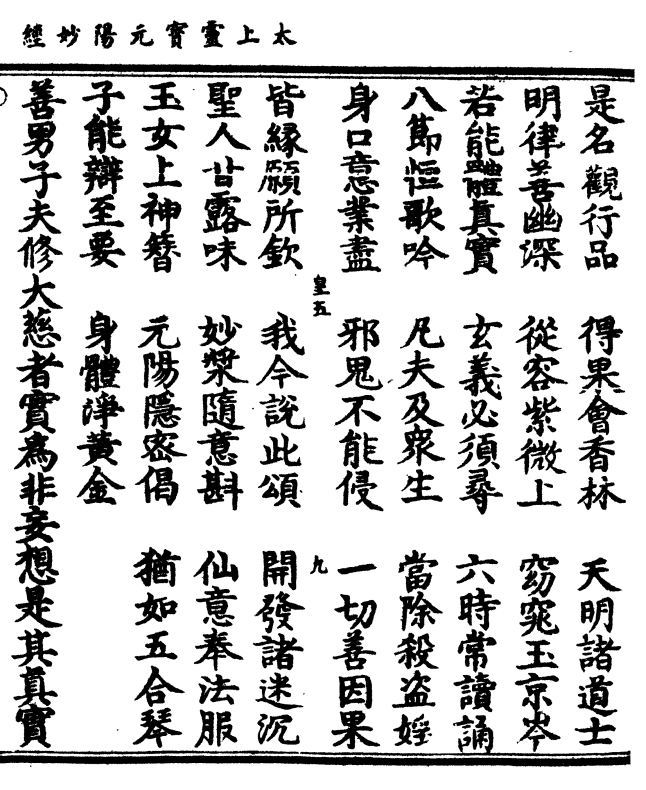 太上靈寳元陽妙經
是名觀行品　得果會香林　天明諸道士
明律善幽深　從容紫微上　窈窕玉京岑
若能體真實　玄義必須尋　六時常讀誦
八節恒歌吟　凡夫及衆生　當除殺盗婬
身口意業盡　邪鬼不能侵　一切善因果
皇五　九
皆緣願所欽　我今說此頌　開發諸迷沉
聖人甘露味　妙漿隨意斟　仙意奉法服
玉女上神簪　元陽隱密偈　猶如五合琴
子能辯至要　身體淨黄金
善男子夫修大慈者實爲非妄想是其真實